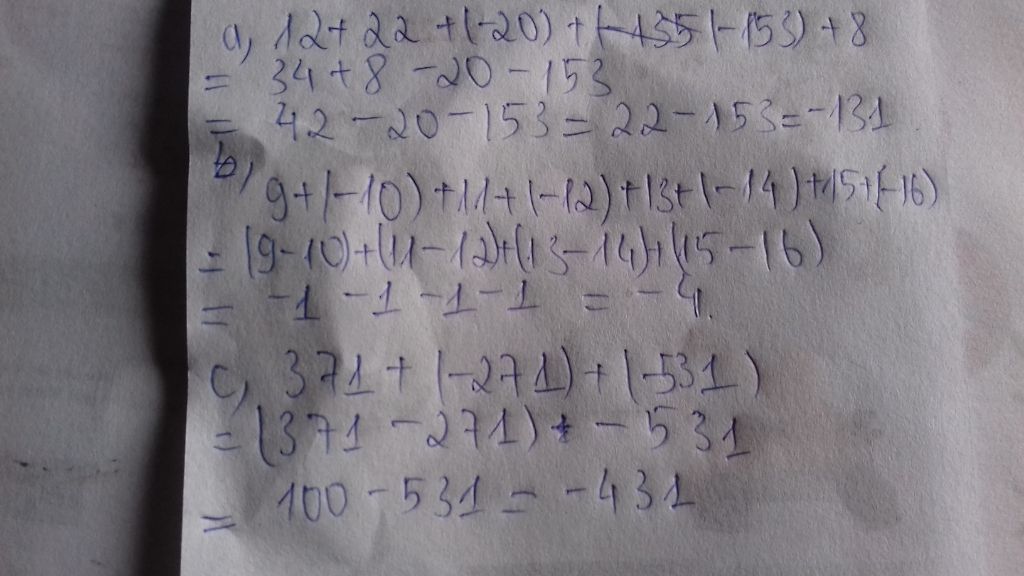 a, 12 + 22 + (-20) + (-135 (-153) + 8
= 34 + 8 - 20 - 153
= 42 - 20 - 153 = 22 - 153 = -131
b, 9 + (-10) + 11 + (-12) + 13 + (-14) + 15 + (-16)
= (9 - 10) + (11 - 12) + (13 - 14) + (15 - 16)
= -1 -1 -1 -1 = -4.
c, 371 + (-271) + (-531)
= (371 - 271) - 531
= 100 - 531 = -431